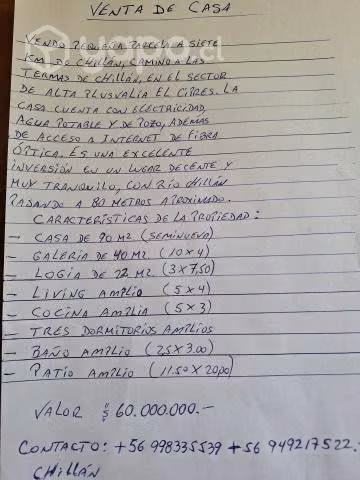 VENTA DE CASA
yapo.cl
VENDO PEQUEÑA PARCELA A SIETE
KM DE CHILLÁN, CAMINO A LAS
TERMAS DE CHILLÁN, EN EL SECTOR
DE ALTA PLUSVALIA EL CIPRES. LA
CASA CUENTA CON ELECTRICIDAD,
AGUA POTABLE Y DE POZO, ADEMAS
DE ACCESO A INTERNET DE FIBRA
ÓPTICA. ES UNA EXCELENTE
INVERSIÓN EN UN LUGAR DECENTE Y
MUY TRANQUILO, CON RÍO CHILLÁN
PASANDO A 80 METROS APROXIMADO.
CARACTERÍSTICAS DE LA PROPIEDAD:
- CASA DE 90 M2 (SEMINUEVA)
- GALERIA DE 40 M2 (10 X 4)
- LOGIA DE 22 M2 (3 X 7,50)
- LIVING AMPLIO (5 X 4)
- COCINA AMPLIA (5 X 3)
- TRES DORMITORIOS AMPLIOS
- BAÑO AMPLIO (2,5 X 3.00)
- PATIO AMPLIO (11.50 X 20,00)
VALOR $ 60.000.000.-
CONTACTO: +56 998335539 +56 949217522.-
CHILLÁN